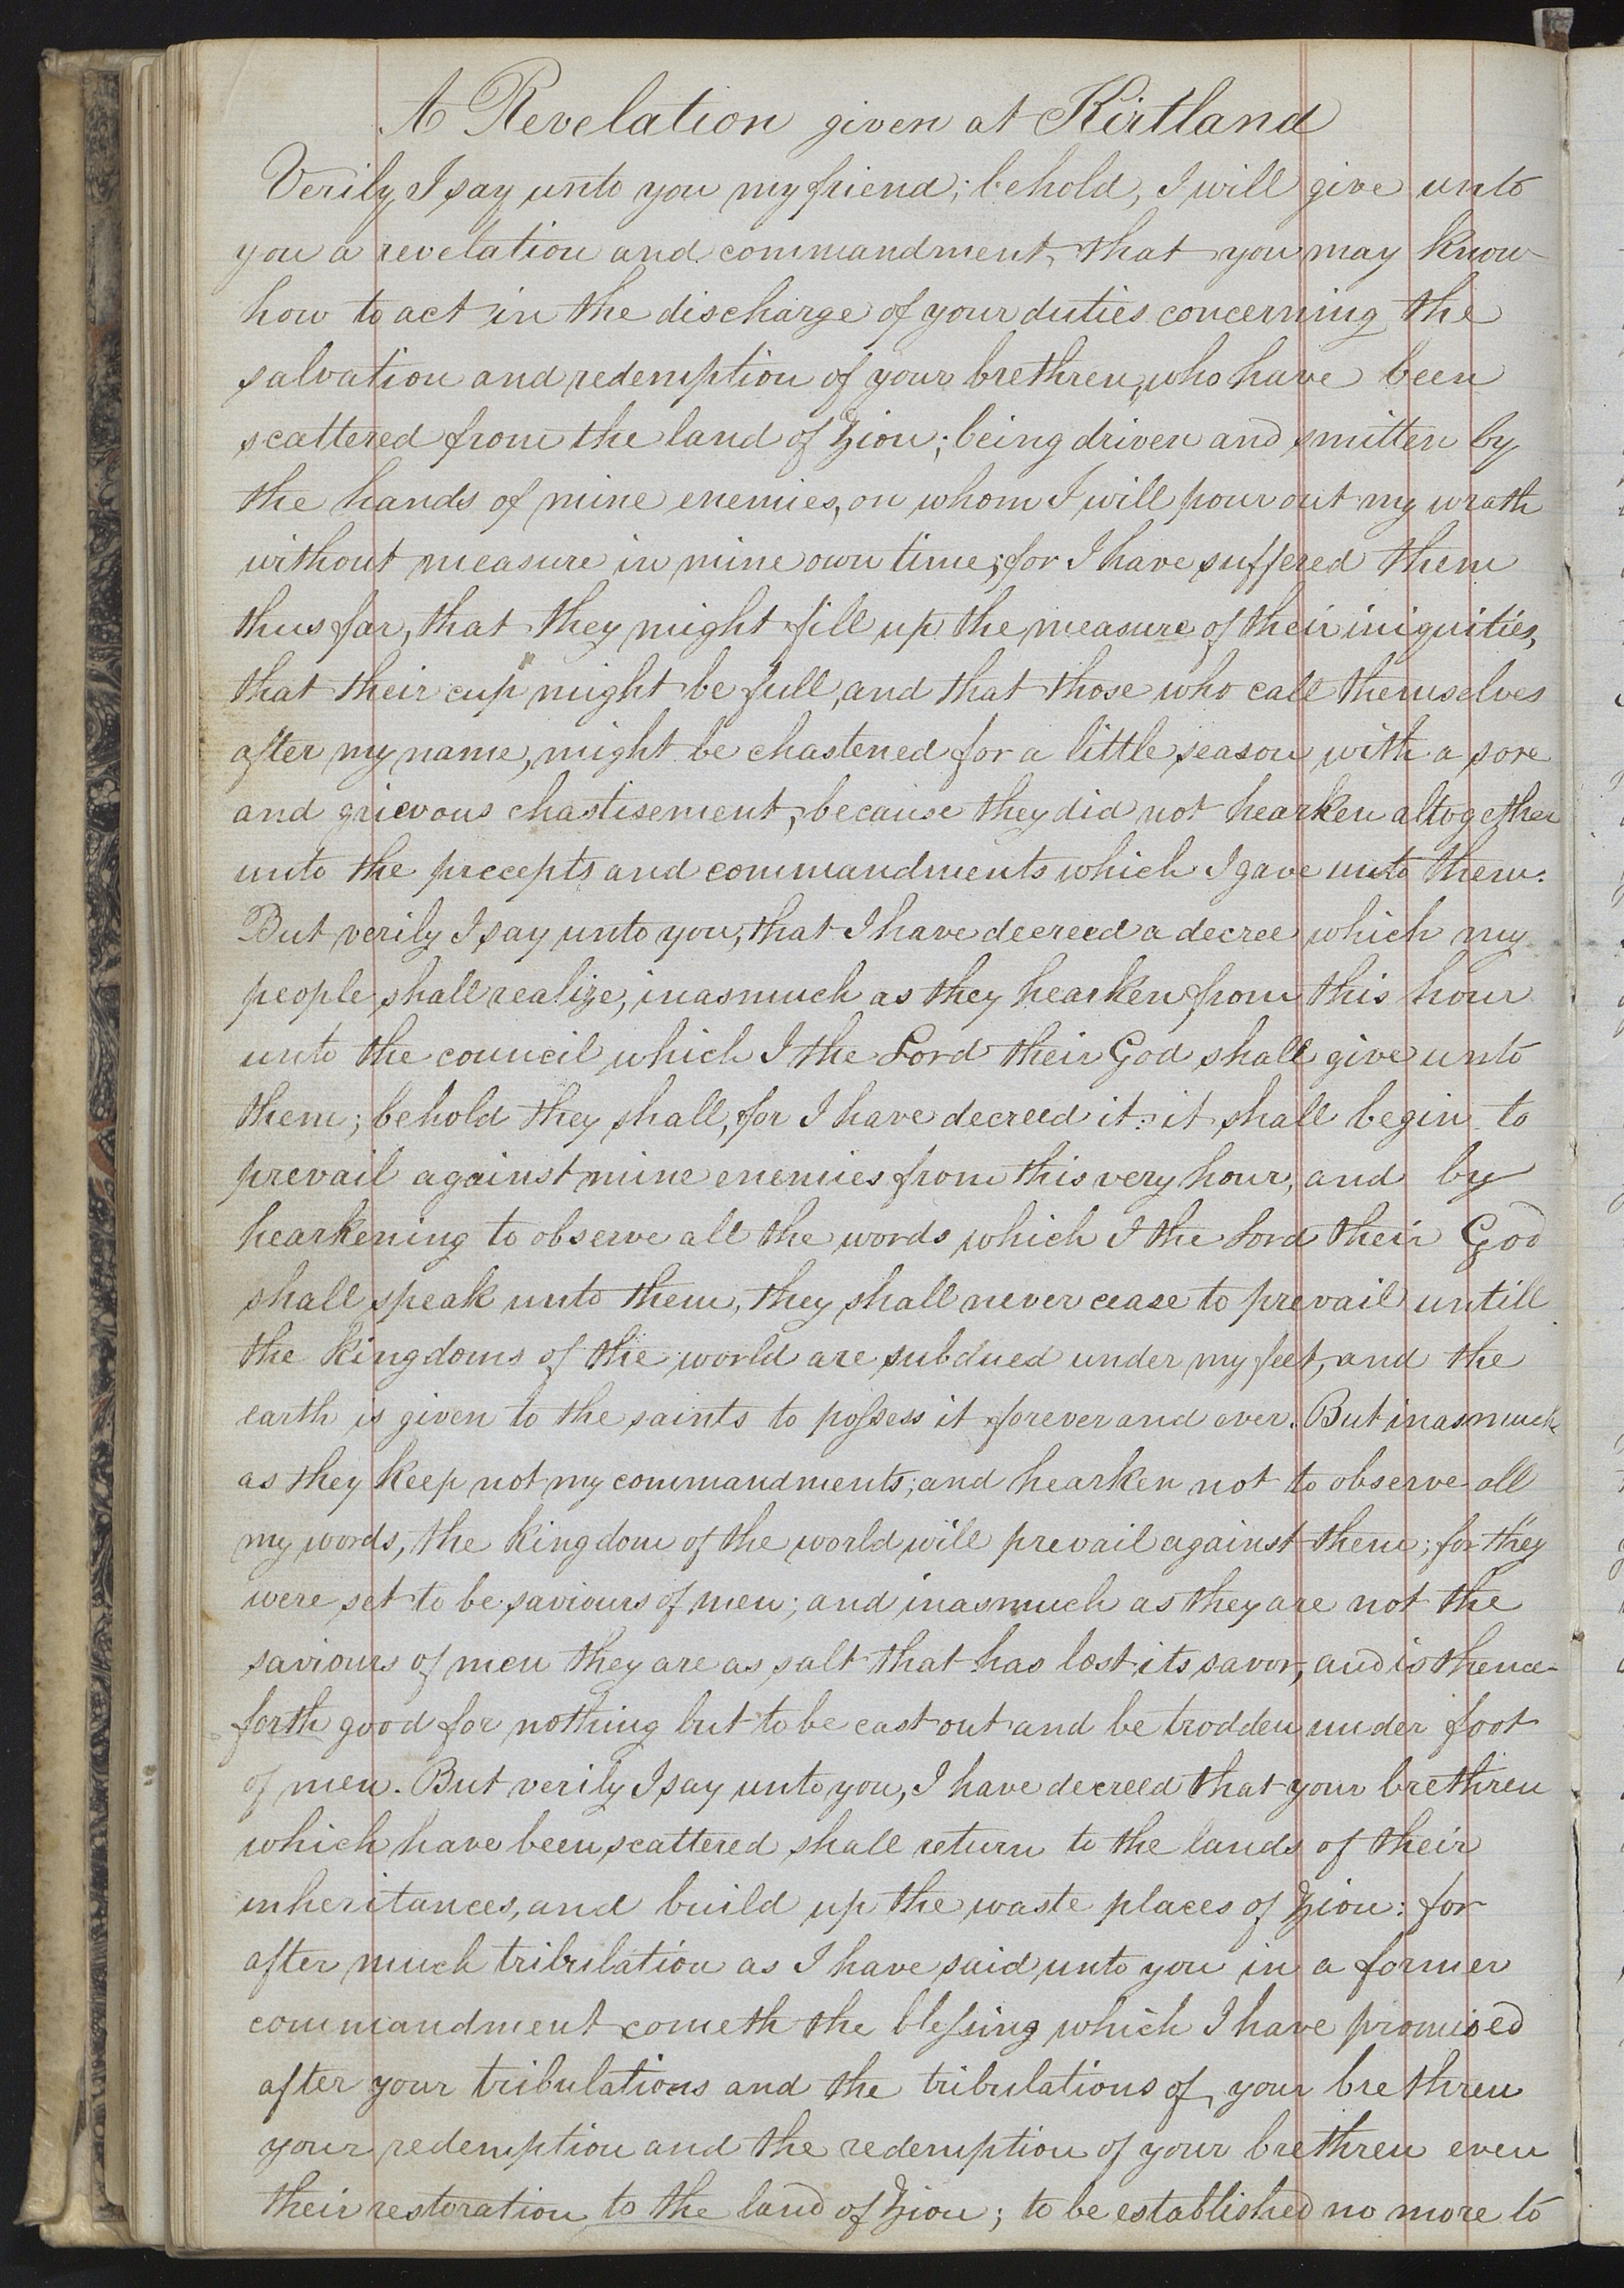 A Revelation given at Kirtland
Verily I say unto you my friend; behold, I will give unto
you a revelation and commandment, that you may know
how to act in the discharge of your duties concerning the
salvation and redemption of your brethren, who have been
scattered from the land of Zion; being driven and smitten by
the hands of mine enemies, on whom I will pour out my wrath
without measure in mine own time; for I have suffered them
thus far, that they might fill up the measure of their iniquities,
that their cup might be full, and that those who call themselves
after my name, might be chastened for a little season with a sore
and grievous chastisement, because they did not hearken altogether
unto the precepts and commandments which I gave unto them.
But verily I say unto you, that I have decreed a decree which my
people shall realize, inasmuch as they hearken from this hour
unto the council which I the Lord their God shall give unto
them; behold they shall, for I have decreed it: it shall begin to
prevail against mine enemies from this very hour, and by
hearkening to observe all the words which I the Lord their God
shall speak unto them, they shall never cease to prevail untill
the kingdoms of the world are subdued under my feet, and the
earth is given to the saints to possess it forever and ever. But inasmuch
as they keep not my commandments; and hearken not to observe all
my words, the kingdom of the world will prevail against them; for they
were set to be saviours of men; and inasmuch as they are not the
saviours of men they are as salt that has lost its savor, and is thence-
forth good for nothing but to be cast out and be trodden under foot
of men. But verily I say unto you, I have decreed that your brethren
which have been scattered shall return to the lands of their
inheritances, and build up the waste places of Zion: for
after much tribulation as I have said unto you in a former
commandment cometh the blessing which I have promised
after your tribulations and the tribulations of your brethren
your redemption and the redemption of your brethren even
their restoration to the land of Zion; to be established no more to